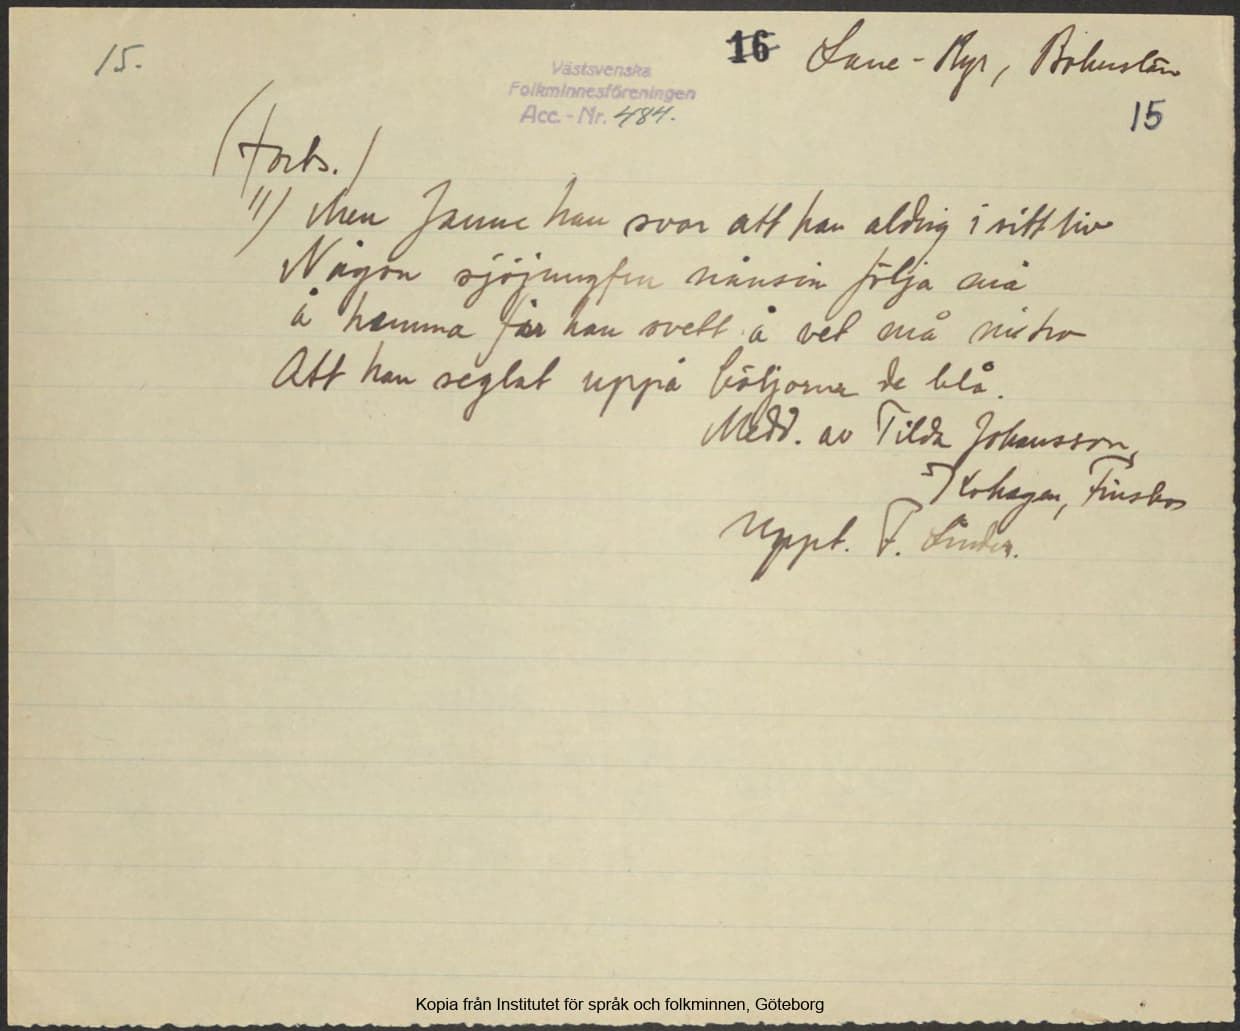 15.
16 Lane-Ryr, Bohuslän
Västsvenska
Folkminnesföreningen
Acc.-Nr. 484.
15
(Forts.)
11) Men Janne han svor att han aldrig i sitt liv
Någon sjöjungfru nånsin följa må
å hemma får han svett å vet må
Att han seglat uppå böljorna de blå.
Medd. av Tilda Johansson,
Kohagen, Finsbo
Uppt. F. Linder.
Kopia från Institutet för språk och folkminnen, Göteborg